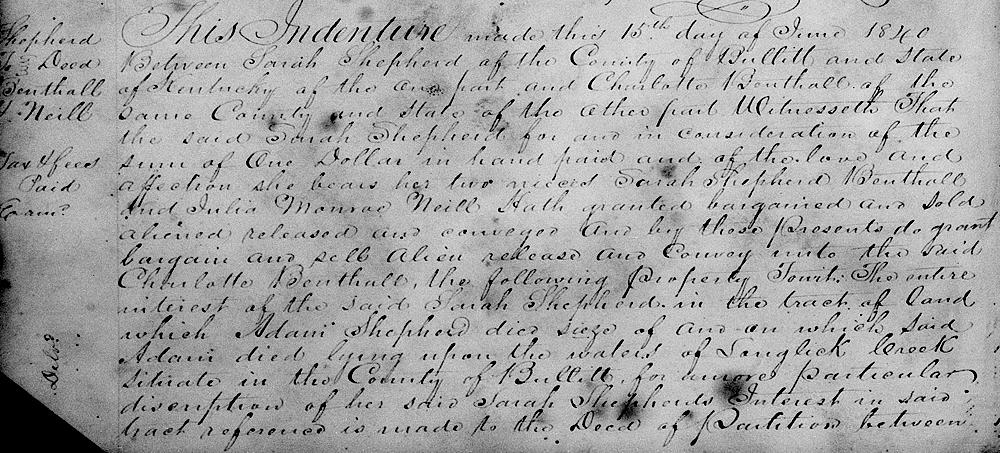 Shepherd
To Deed
Benthall
& Neill
Tax & fees
Paid
Exam.d
Del.d
This Indenture made this 15th day of June 1840
Between Sarah Shepherd of the County of Bullitt and State
of Kentucky of the one part and Charlotte Benthall of the
same County and State of the other part Witnesseth That
the said Sarah Shepherd for and in consideration of the
sum of One Dollar in hand paid and of the love and
affection she bears her two nieces Sarah Shepherd Benthall
and Julia Monroe Neill Hath granted bargained and sold
aliened released and conveyed And by these Presents do grant
bargain and sell alien release and Convey unto the said
Charlotte Benthall, the following Property Towit: The entire
interest of the said Sarah Shepherd in the tract of land
which Adam Shepherd died sieze of and on which said
Adam died lying upon the waters of Longlick Creek
situate in the County of Bullitt, for a more particular
discription of her said Sarah Shepherds Interest in said
tract reference is made to the Deed of Partition between